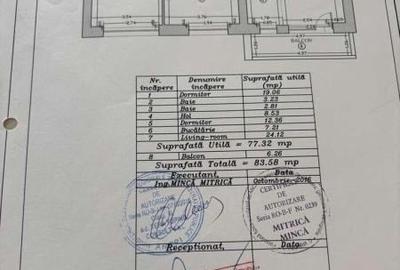 BALCON
8
Nr. încăpere Denumire încăpere Suprafată utilă (mp)
1 Dormitor 19.06
2 Baie 3.23
3 Baie 2.81
4 Hol 8.53
5 Dormitor 12.36
6 Bucătărie 7.21
7 Living-room 24.12
Suprafată Utilă = 77.32 mp
8 Balcon 6.26
Suprafată Totală = 83.58 mp
Executant, Data
Ing.MINCĂ MITRICĂ Octombrie 2016
CERTIFICAT
DE
AUTORIZARE
CERTIFICAT
DE
AUTORIZARE
Seria RO-B-F Nr. 0239
MITRICĂ
MINCĂ
Receptionat, Data